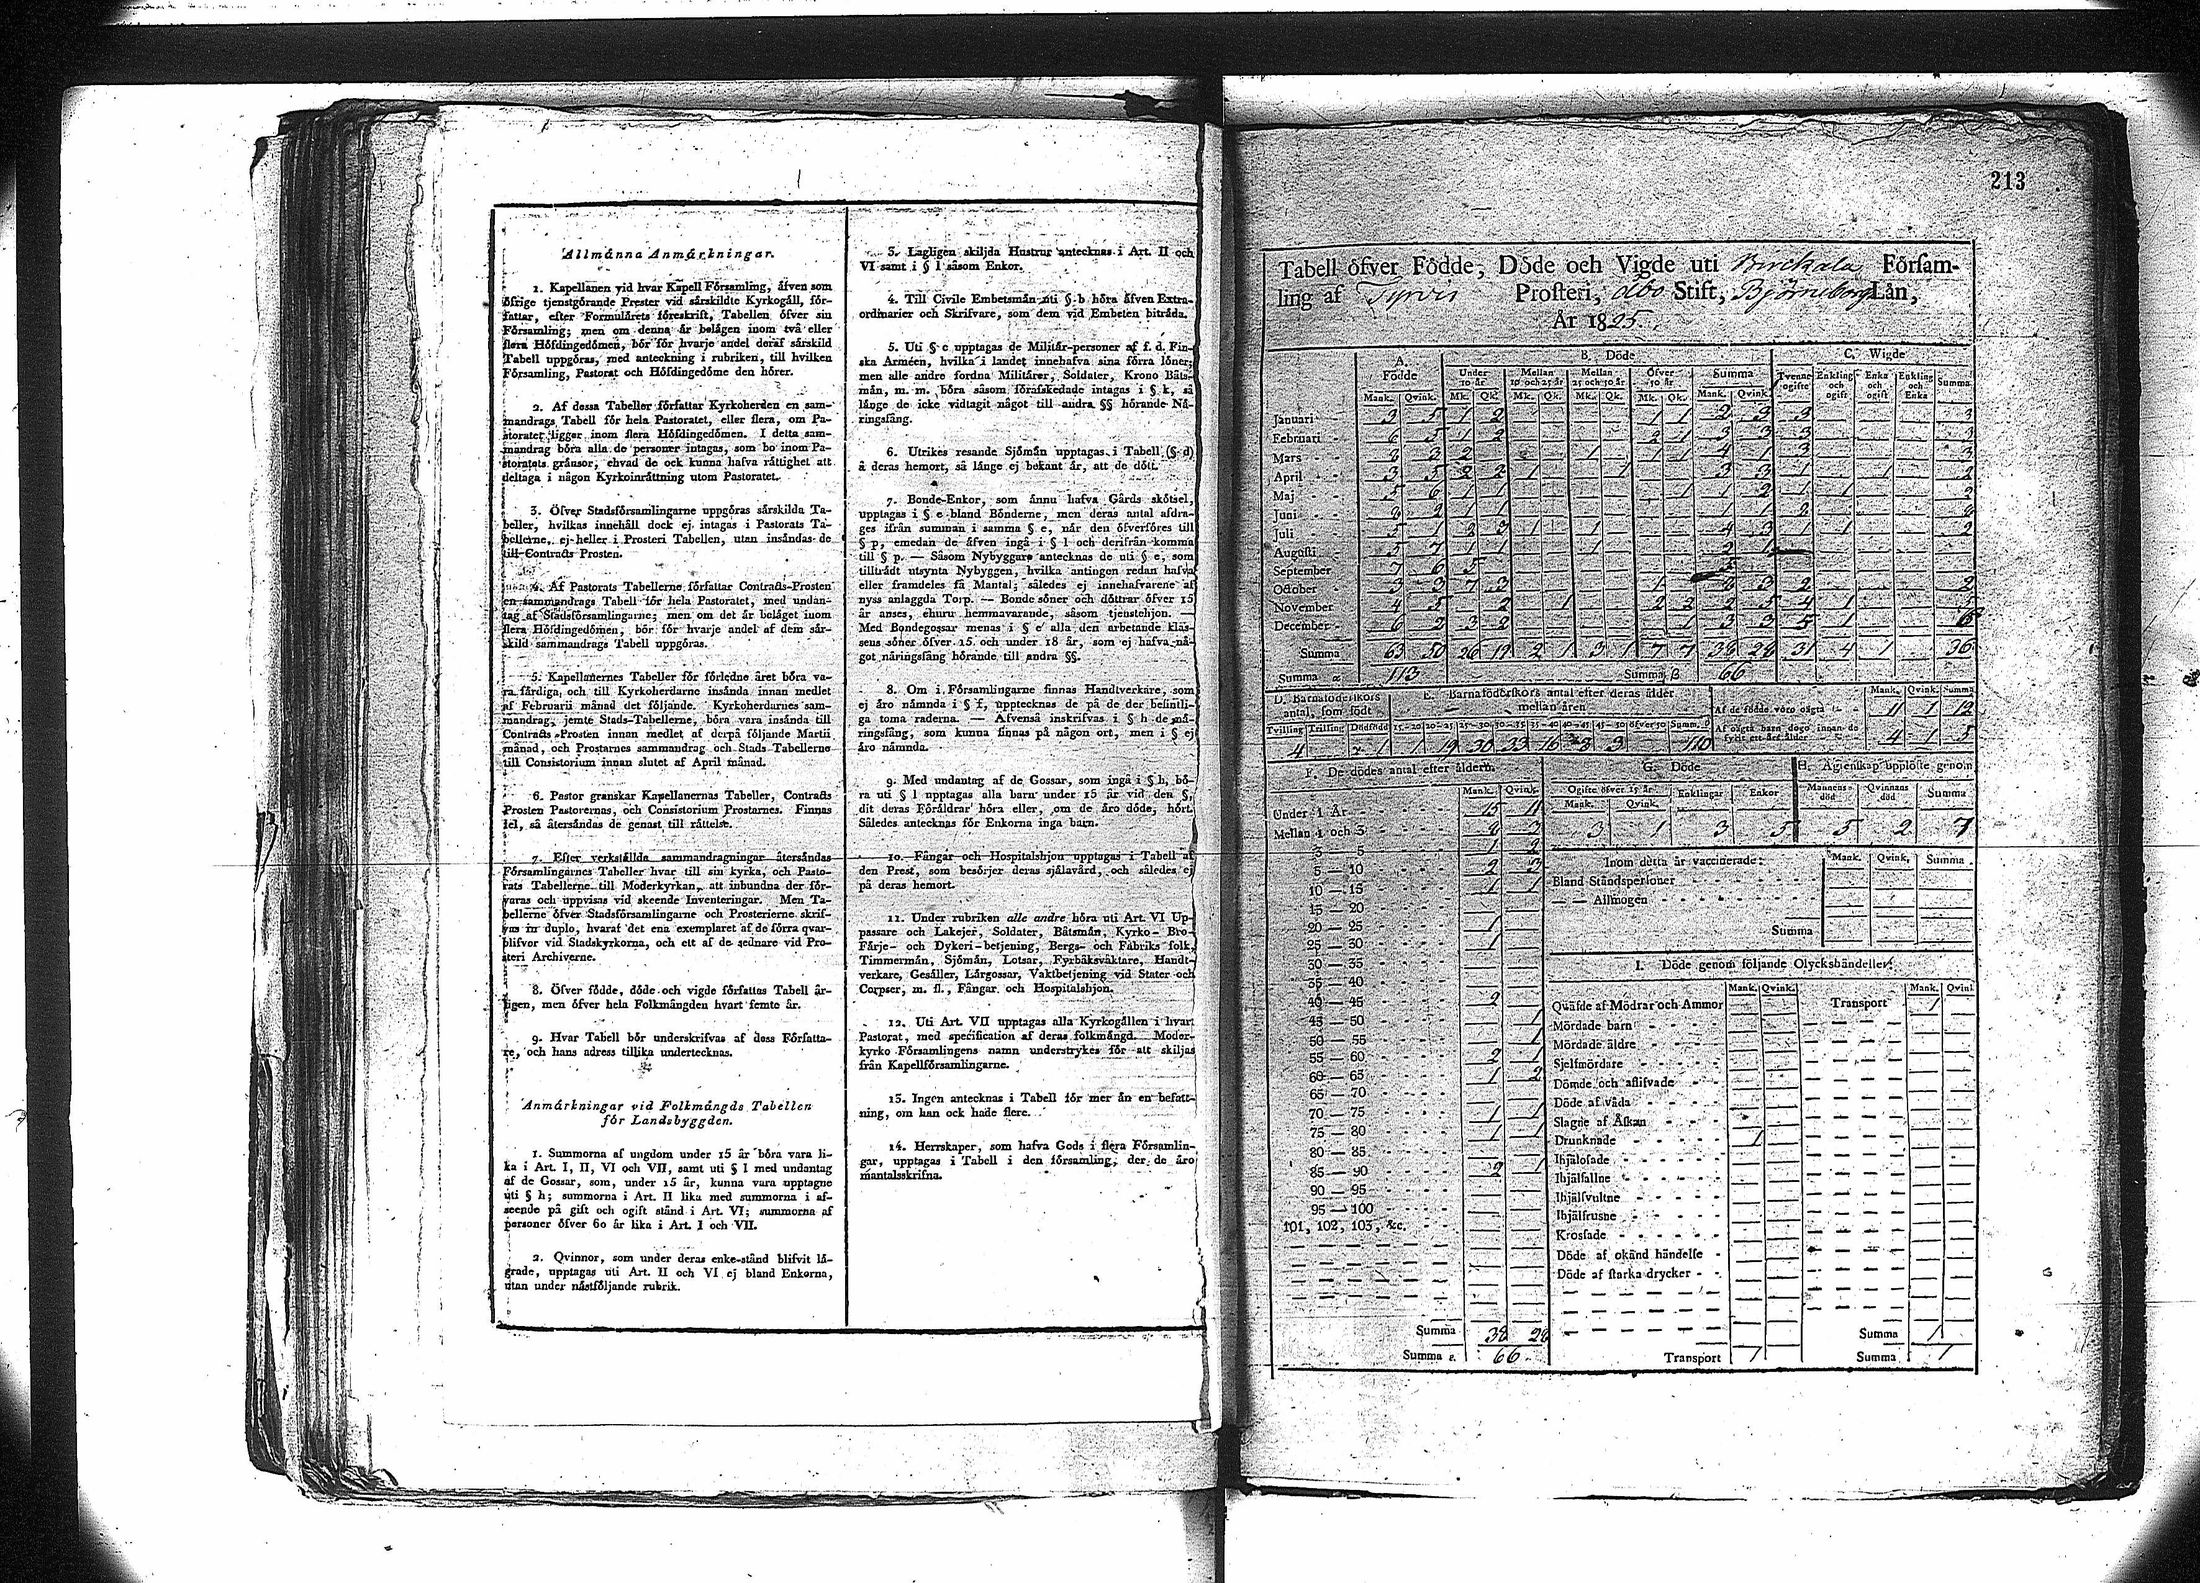 213
Allmånna Anmårkningar.
1. Kapellanen vid hvar Kapell Församling, åfven som
öfrige tjenstgörande Prester vid sårskildte Kyrkogåll, för-
fattar, efter Formulårets föreskrift, Tabellen öfver sin
Församling; men om denna år belågen inom två eller
flera Höfdingedömen, bör för hvarje andel deraf sårskild
Tabell uppgöras, med anteckning i rubriken, till hvilken
Församling, Pastorat och Höfdingedöme den hörer.
2. Af dessa Tabeller författar Kyrkoherden en sam-
mandrags Tabell för hela Pastoratet, eller flera, om Pa-
storatet ligger inom flera Höfdingedömen. I detta sam-
mandrag böra alla de personer intagas, som bo inom Pa-
storatets grånsor, ehvad de ock kunna hafva råttighet att
deltaga i någon Kyrkoinråttning utom Pastoratet.
3. Öfver Stadsförsamlingarne uppgöras sårskilda Ta-
beller, hvilkas innehåll dock ej intagas i Pastorats Ta-
bellerne, ej heller i Prosteri Tabellen, utan insåndas de
till Contracts Prosten.
4. Af Pastorats Tabellerne författar Contracts-Prosten
en sammandrags Tabell för hela Pastoratet, med undan-
tag af Stadsförsamlingarne; men om det år belåget inom
flera Höfdingedömen, bör för hvarje andel af dem sår-
skild sammandrags Tabell uppgöras.
5. Kapellanernes Tabeller för förledne året böra va-
ra fårdiga, och till Kyrkoherdarne insånda innan medlet
af Februarii månad det följande. Kyrkoherdarnes sam-
mandrag, jemte Stads-Tabellerne, böra vara insånda till
Contracts-Prosten innan medlet af derpå följande Martii
månad, och Prostarnes sammandrag och Stads-Tabellerne
till Consistorium innan slutet af April månad.
6. Pastor granskar Kapellanernas Tabeller, Contracts
Prosten Pastorernas, och Consistorium Prostarnes. Finnas
fel, så återsåndas de genast till råttelse.
7. Efter verkstållda sammandragningar återsåndas
Församlingarnes Tabeller hvar till sin kyrka, och Pasto-
rats Tabellerne till Moderkyrkan, att inbundna der för-
varas och uppvisas vid skeende Inventeringar. Men Ta-
bellerne öfver Stadsförsamlingarne och Prosterierne skrif-
vas in duplo, hvaraf det ena exemplaret af de förra qvar-
blifver vid Stadskyrkorna, och ett af de sednare vid Pro-
steri Archiverne.
8. Öfver födde, döde och vigde författas Tabell år-
ligen, men öfver hela Folkmångden hvart femte år.
9. Hvar Tabell bör underskrifvas af dess Författa-
re, och hans adress tillika undertecknas.
Anmårkningar vid Folkmångds Tabellen
för Landsbyggden.
1. Summorna af ungdom under 15 år böra vara li-
ka i Art. I, II, VI och VII, samt uti § l med undantag
af de Gossar, som, under 15 år, kunna vara upptagne
uti § h; summorna i Art. II lika med summorna i af-
seende på gift och ogift stånd i Art. VI; summorna af
personer öfver 60 år lika i Art. I och VII.
2. Qvinnor, som under deras enke-stånd blifvit lå-
grade, upptagas uti Art. II och VI ej bland Enkorna,
utan under nåstföljande rubrik.
3. Lagligen skiljda Hustrur antecknas i Art. II och
VI samt i § l såsom Enkor.
4. Till Civile Embetsmån uti § b höra åfven Extra-
ordinarier och Skrifvare, som dem vid Embeten bitråda.
5. Uti § c upptagas de Militår-personer af f. d. Fin-
ska Arméen, hvilka i landet innehafva sina förra löner;
men alle andre fordna Militårer, Soldater, Krono Båts-
mån, m. m. böra såsom förafskedade intagas i § k, så
långe de icke vidtagit något till andra §§ hörande Nå-
ringsfång.
6. Utrikes resande Sjömån upptagas i Tabell (§ d)
å deras hemort, så långe ej bekant år, att de dött.
7. Bonde-Enkor, som ånnu hafva Gårds skötsel,
upptagas i § e bland Bönderne, men deras antal afdra-
ges ifrån summan i samma § e, når den öfverföres till
§ p, emedan de åfven ingå i § l och derifrån komma
till § p. — Såsom Nybyggare antecknas de uti § e, som
tilltrådt utsynta Nybyggen, hvilka antingen redan hafva
eller framdeles få Mantal; således ej innehafvarene af
nyss anlaggda Torp. — Bonde söner och döttrar öfver 15
år anses, ehuru hemmavarande, såsom tjenstehjon.
Med Bondegossar menas i § e alla den arbetande klas-
sens söner öfver 15 och under 18 år, som ej hafva nå-
got nåringsfång hörande till andra §§.
8. Om i Församlingarne finnas Handtverkare, som
ej åro nåmnda i § f, upptecknas de på de der befintli-
ga toma raderna. — Afvenså inskrifvas i § h de nå-
ringsfång, som kunna finnas på någon ort, men i § ej
åro nåmnda.
9. Med undantag af de Gossar, som ingå i § h, bö-
ra uti § l upptagas alla barn under 15 år vid den §,
dit deras Föråldrar höra eller, om de åro döde, hört.
Således antecknas för Enkorna inga barn.
10. Fångar och Hospitalshjon upptagas i Tabell af
den Prest, som besörjer deras sjålavård, och således ej
på deras hemort.
11. Under rubriken alle andre höra uti Art. VI Up-
passare och Lakejer, Soldater, Båtsmån, Kyrko- Bro-
Fårje- och Dykeri-betjening, Bergs- och Fabriks folk,
Timmermån, Sjömån, Lotsar, Fyrbåksvåktare, Handt-
verkare, Gesåller, Lårgossar, Vaktbetjening vid Stater och
Corpser, m. fl., Fångar och Hospitalshjon.
12. Uti Art. VII upptagas alla Kyrkogållen i hvart
Pastorat, med specification af deras folkmångd. Moder-
kyrko Församlingens namn understrykes för att skiljas
från Kapellförsamlingarne.
13. Ingen antecknas i Tabell för mer ån en befatt-
ning, om han ock hade flere.
14. Herrskaper, som hafva Gods i flera Församlin-
gar, upptagas i Tabell i den församling, der de åro
mantalsskrifna.
Tabell öfver Födde, Döde och Vigde uti Birckala Försam-
ling af Tyrvis Prosteri, Åbo Stift, Björneborgs Lån,
År 1825.
A. Födde B. Döde C. Wigde
Under 10 år Mellan 10 och 25 år Mellan 25 och 50 år Öfver 50 år Summa Tvenne ogifte Enkling och ogift Enka och ogift Enkling och Enka Summa
Mank. Qvink. Mk. Qk. Mk. Qk. Mk. Qk. Mk. Qk. Mank. Qvink.
Januari 3 5 1 2 1 1 2 3 3 3
Februari 6 5 1 2 2 1 3 3 3 3
Mars 8 3 2 1 1 1 4 1 3 3
April 3 5 2 2 1 1 3 3 1 1 2
Maj 5 6 1 1 1 1 2 1 1 2
Juni
Juli
Augusti
September 7 6 5
October 3 3 7 3 1 8 3 2 2
November 4 5 2 1 2 2 2 5 4 1 5
December 6 2 3 2 1 3 3 5 1 6
Summa 63 50 26 19 2 1 3 1 7 7 38 28 31 4 1 36
Summa α 113 Summa β 66
D. Barnaföderskors antal, som födt E. Barnaföderskors antal efter deras ålder mellan åren Mank. Qvink. Summa
Af de födde voro oågta 11 1 12
Tvilling Trilling Dödfödd 15-20 20-25 25-30 30-35 35-40 40-45 45-50 öfver 50 Summ.
Af oågta barn dogo innan de fyllt ett års ålder 4 1 5
4 1 1 19 30 33 16 8 3 110
F. De dödes antal efter åldern.
Mank. Qvink.
Under 1 År 15 11
Mellan 1 och 3 8 3
3 — 5 1 2
5 — 10 2 3
10 — 15 1 1
15 — 20
20 — 25 1
25 — 30 1
30 — 35
35 — 40
40 — 45 2
45 — 50 1
50 — 55 1
55 — 60 2 1
60 — 65 1 2
65 — 70
70 — 75 1 1
75 — 80 1 1
80 — 85
85 — 90 2 1
90 — 95
95 — 100
101, 102, 103, &c.
Summa 38 28
Summa ε. 66
G. Döde
Ogifte öfver 15 år Enklingar Enkor
Mank. Qvink.
3 1 3 5
H. Ågtenskap upplöste genom
Mannens död Qvinnans död Summa
5 2 7
Inom detta år vaccinerade: Mank. Qvink. Summa
Bland Ståndspersoner
— — Allmogen
Summa
I. Döde genom följande Olyckshåndelser:
Mank. Qvink. Mank. Qvink.
Qvåfde af Mödrar och Ammor Transport 1
Mördade barn
Mördade åldre
Sjelfmördare
Dömde och aflifvade
Döde af våda
Slagne af Åskan
Drunknade 1
Ihjålosade
Ihjålfallne
Ihjålsvultne
Ihjålfrusne
Krossade
Döde af okånd håndelse
Döde af starka drycker
Summa 1
Transport 1 Summa 1